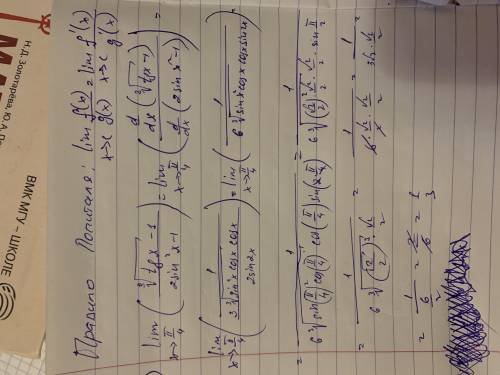 Правило Лопиталя: lim x→c f(x)/g(x) = lim x→c f'(x)/g'(x)
lim x→π/4 ((∛tgx − 1)/(2sin²x − 1)) = lim x→π/4 (d/dx(∛tgx − 1) / d/dx(2sin x² − 1)) =
lim x→π/4 ((1/(3∛(sin²x cosx) cosx))/(2sin2x)) = lim x→π/4 (1/(6∛(sin²x cosx) cosx sin2x))
= 1/(6∛(sin(π/4)² cos(π/4)) cos(π/4) sin(2·π/4)) = 1/(6∛((√2/2)²·√2/2)·√2/2·sin π/2)
= 1/(6∛((√2/2)³)·√2/2) = 1/(6·√2/2·√2/2) = 1/(3√2·√2/2) =
= 1/(6/2) = 2/6 = 1/3
Н.Д. Золотарёва, Ю.А. По
ВМК МГУ – ШКОЛЕ